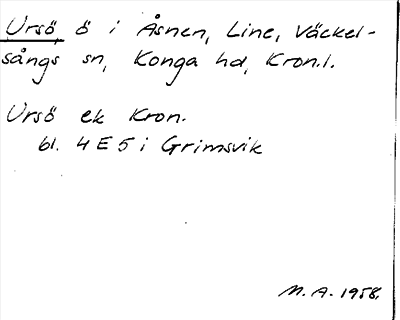 Ursö, ö i Åsnen, Line, Väckel-
sångs sn, Konga hd, Kron.l.
Ursö ek Kron.
bl. 4E5i Grimsvik
M.A. 1958.